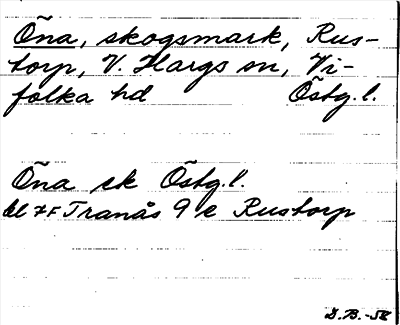 Öna, skogsmark, Rus-
torp, V. Hargs sn, Vi-
folka hd Östg.l.
Öna ek Östg.l.
bl 7F Tranås 9 e Rustorp
D.B.-58